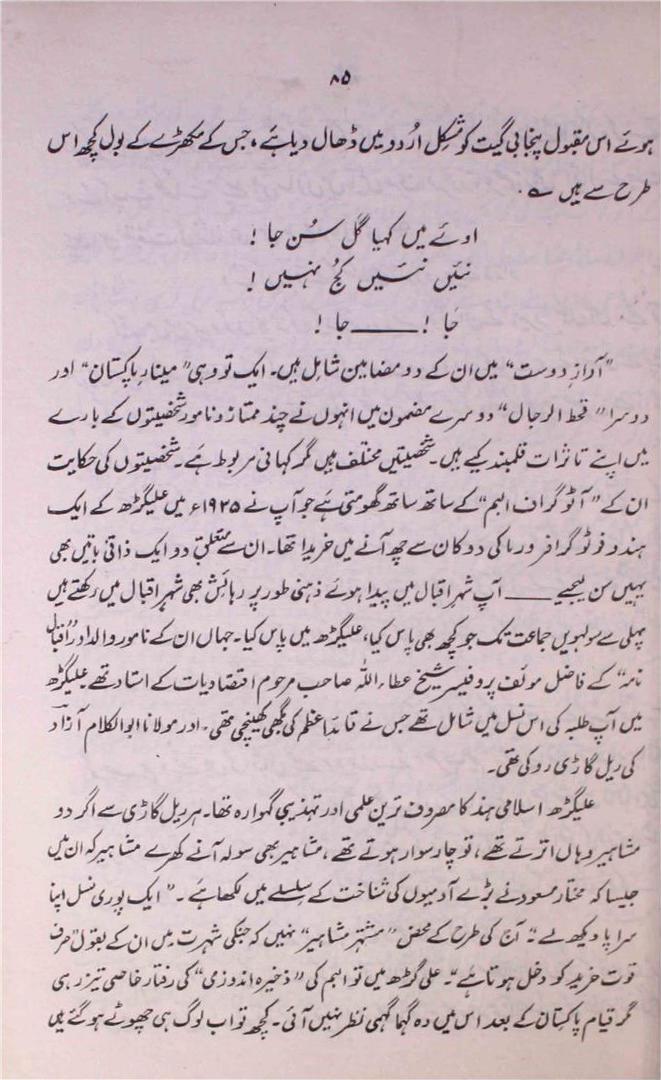 ۸۵
ہوئے اس مقبول پنجابی گیت کو مشکل اُردو میں ڈھال دیا ہے، جس کے مکھڑے کے بول کچھ اس
طرح سے ہیں ؎
اوئے میں کہیا گل سُن جا!
نئیں نئیں کج نہیں!
جا! ــــــ جا!
"آوازِ دوست" میں ان کے دو مضامین شامل ہیں۔ ایک تو وہی "مینارِ پاکستان" اور
دوسرا "قحط الرجال" دوسرے مضمون میں انہوں نے چند ممتاز و نامور شخصیتوں کے بارے
میں اپنے تاثرات قلمبند کیے ہیں۔ شخصیتیں مختلف ہیں مگر کہانی مربوط ہے۔ شخصیتوں کی حکایت
ان کے "آٹو گراف البم" کے ساتھ ساتھ گھومتی ہے جو آپ نے ۱۹۳۵ء میں علیگڑھ کے ایک
ہندو فوٹو گرافر ورما کی دوکان سے چھ آنے میں خریدا تھا۔ ان سے متعلق دو ایک ذاتی باتیں بھی
یہیں سن لیجیے ــــــ آپ شہرِ اقبال میں پیدا ہوئے ذہنی طور پر رہائش بھی شہرِ اقبال میں رکھتے ہیں
پہلی سے سولہویں جماعت تک جو کچھ بھی پاس کیا، علیگڑھ میں پاس کیا۔ جہاں ان کے نامور والد اور "اقبال
نامہ" کے فاضل مولف پروفیسر شیخ عطاء اللہ صاحب مرحوم اقتصادیات کے استاد تھے۔ علیگڑھ
میں آپ طلبہ کی اس نسل میں شامل تھے جس نے قائدِ اعظم کی بگھی کھینچی تھی۔ اور مولانا ابوالکلام آزاد
کی ریل گاڑی روکی تھی۔
علیگڑھ اسلامی ہند کا مصروف ترین علمی اور تہذیبی گہوارہ تھا۔ ہر ریل گاڑی سے اگر دو
مشاہیر وہاں اترتے تھے، تو چار سوار ہوتے تھے، مشاہیر بھی سولہ آنے کھرے مشاہیر کہ ان میں
جیسا کہ مختار مسعود نے بڑے آدمیوں کی شناخت کے سلسلے میں لکھا ہے۔ "ایک پوری نسل اپنا
سراپا دیکھ لے"۔ آج کی طرح کے محض "مشتہر مشاہیر" نہیں کہ جنکی شہرت میں ان کے بقول "صرف
قوتِ خرید کو دخل ہوتا ہے"۔ علی گڑھ میں تو البم کی "ذخیرہ اندوزی" کی رفتار خاصی تیز رہی
مگر قیامِ پاکستان کے بعد اس میں وہ گہما گہمی نظر نہیں آئی۔ کچھ تو اب لوگ ہی چھوٹے ہو گئے ہیں